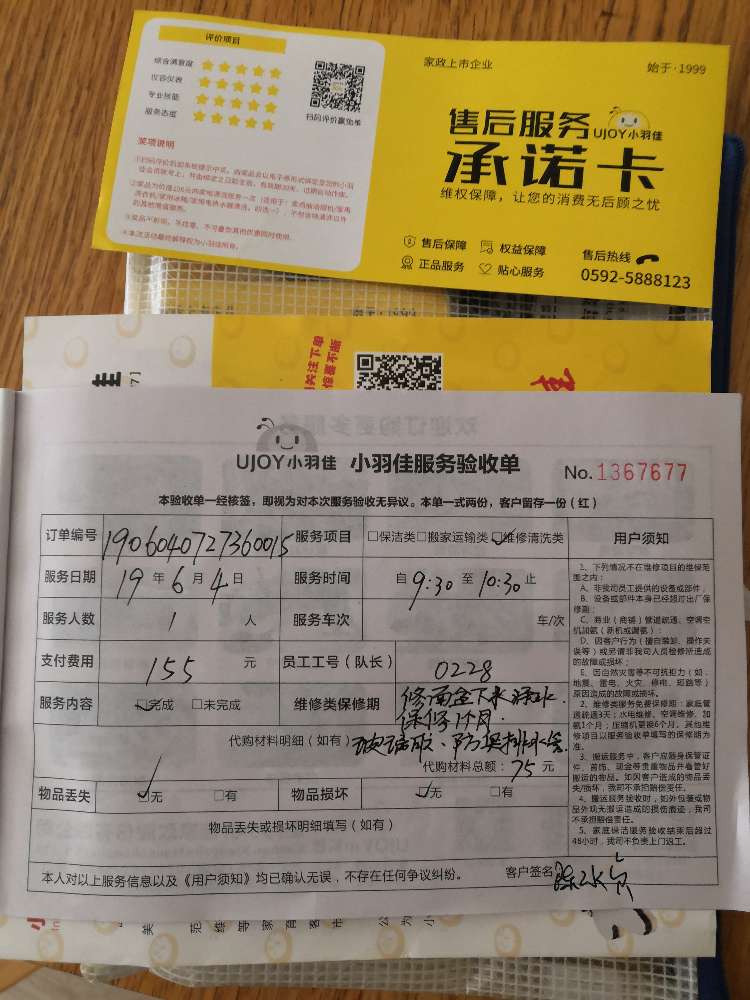 评价项目
综合满意度
仪容仪表
专业技能
服务态度
扫码评价赢免单
奖项说明
家政上市企业
始于·1999
售后服务
UJOY小羽佳
承诺卡
维权保障，让您的消费无后顾之忧
售后保障
权益保障
正品服务
贴心服务
售后热线
0592-5888123
关注下单
惊喜不断
UJOY小羽佳 小羽佳服务验收单
No.1367677
本验收单一经核签，即视为对本次服务验收无异议。本单一式两份，客户留存一份（红）
订单编号 1906040727360015 服务项目 □保洁类□搬家运输类□维修清洗类
服务日期 19年6月4日 服务时间 自9:30至10:30止
服务人数 1 人 服务车次 车/次
支付费用 155 元 员工工号（队长） 0228
服务内容 □完成 □未完成 维修类保修期 修面盆下水漏水
保修1个月
代购材料明细（如有） 玻璃胶、防臭排水管
代购材料总额：75元
物品丢失 □无 □有 物品损坏 □无 □有
物品丢失或损坏明细填写（如有）
本人对以上服务信息以及《用户须知》均已确认无误，不存在任何争议纠纷。
客户签名
用户须知
1、下列情况不在维修项目的维保范
围之内：
A、非我司员工提供的设备或部件；
B、设备或部件本身已经超过出厂保
修期；
C、商业（商铺）管道疏通、空调专
机加氨（新机或漏氨）
D、因客户行为（擅自装卸、操作失
误等）或另请非我司人员检修所造成
的故障或损坏；
E、因自然灾害等不可抗拒力（如：
地震、雷电、火灾、停电、短路等）
原因造成的故障或损坏。
2、维修类服务免费保障期：家庭管
道疏通3天；水电维修、空调维修、加
氨1个月；压缩机更换6个月，其他维
修项目以服务验收单填写的保修期为
准。
3、搬运服务中，客户应随身保管证
件、首饰、现金等贵重物品并看管好
搬运的物品。如因客户造成的物品丢
失/损坏，我司不承担赔偿责任。
4、搬运服务验收时，如外包装或物
品外观无搬运造成的损伤痕迹，我司
不承担赔偿责任。
5、家庭保洁服务验收结束后超过
48小时，我司不负责上门返工。